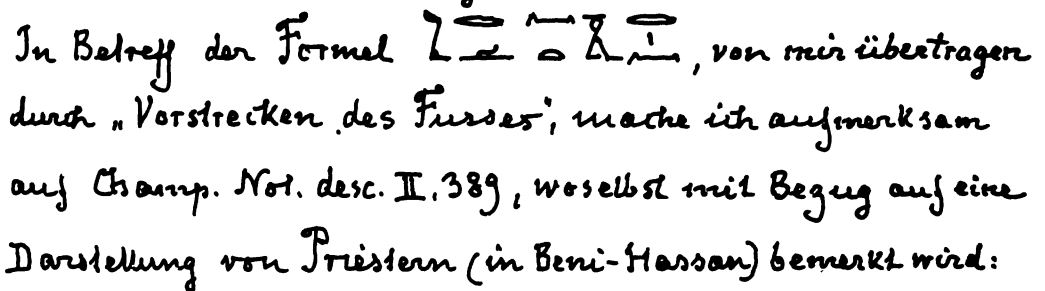 In Betreff der Formel , von mir übertragen
durch „Vorstrecken des Fusses“, mache ich aufmerksam
auf Champ. Not. desc. II. 389, woselbst mit Bezug auf eine
Darstellung von Priestern (in Beni-Hassan) bemerkt wird: